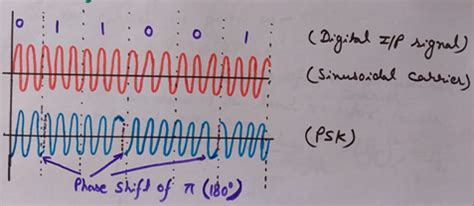 0 1 1 0 0 1
(Digital I/P signal)
(Sinusoidal carrier)
(PSK)
Phase shift of π (180°)